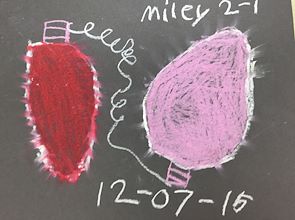 miley 2-1
12-07-15